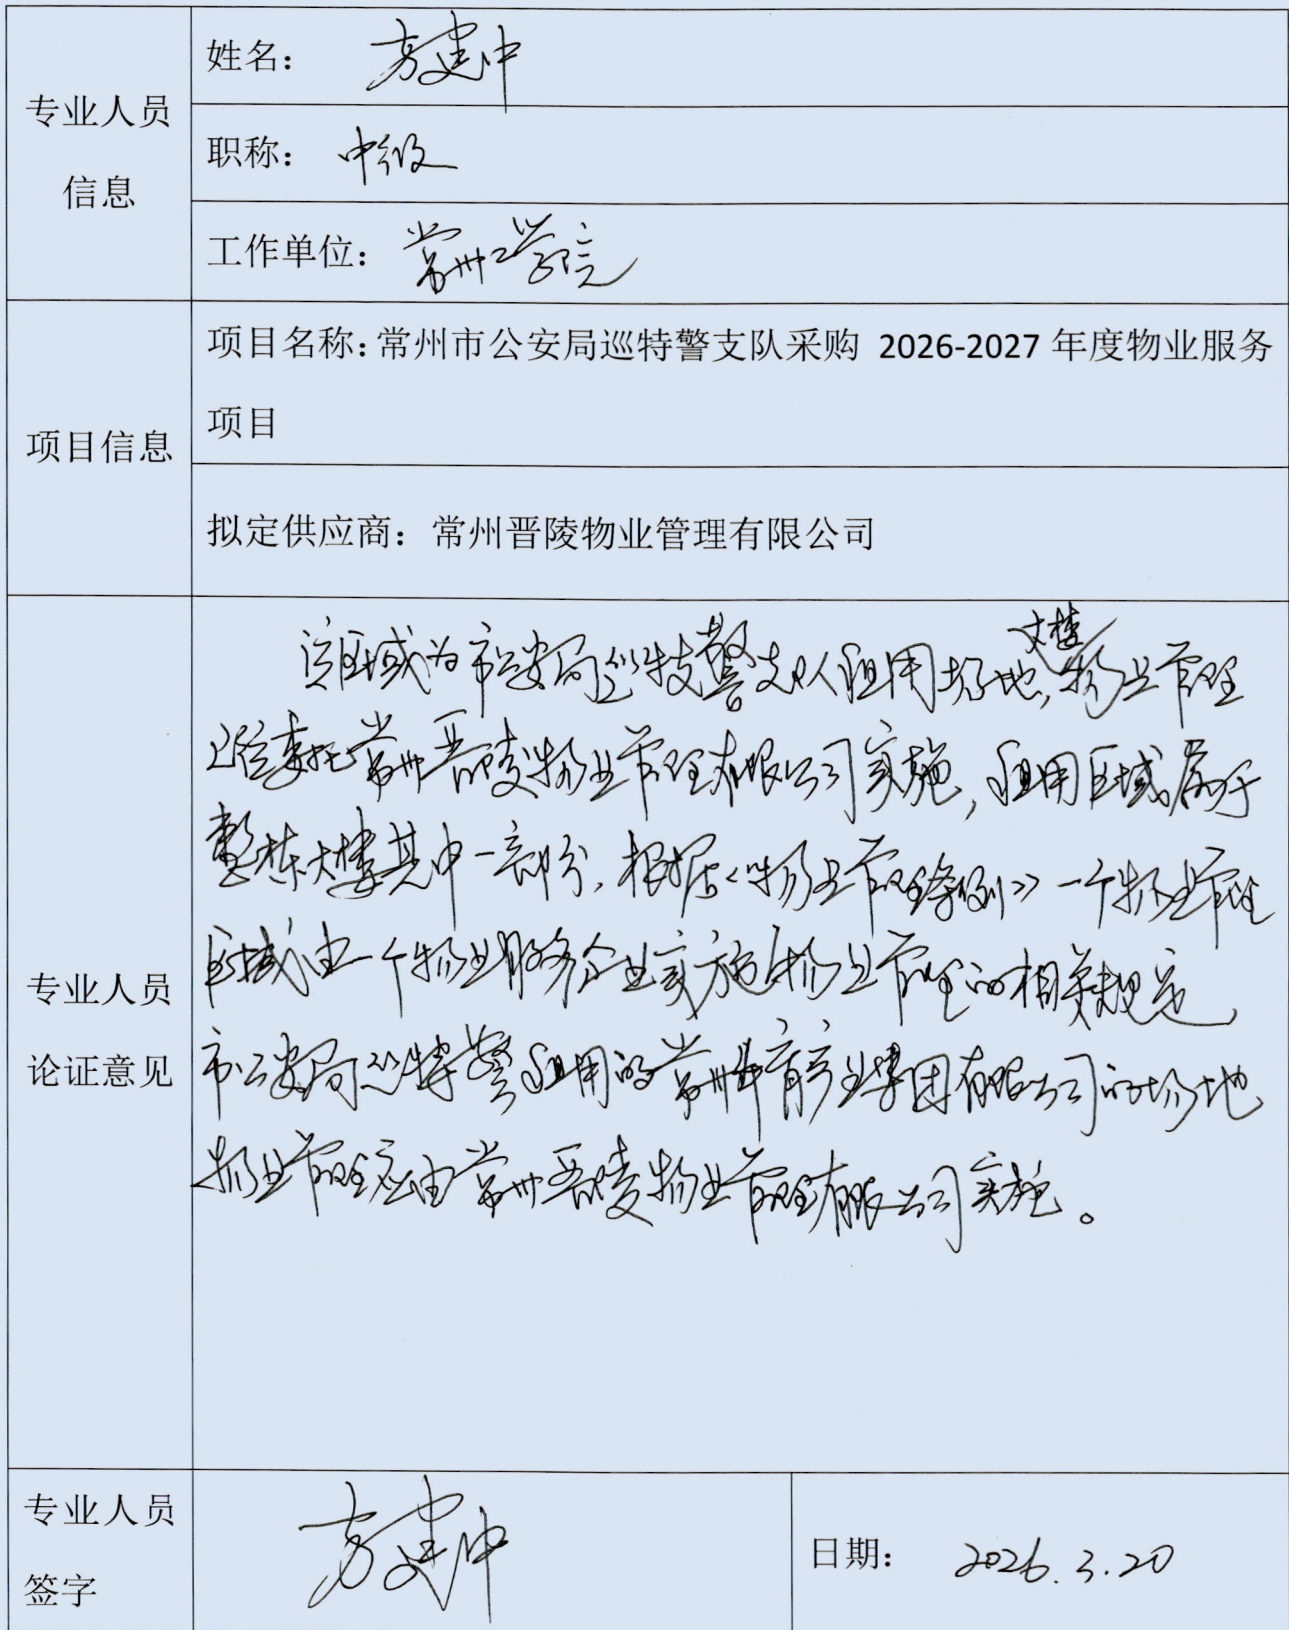 专业人员
信息
姓名： 方建中
职称： 中级
工作单位： 常州工学院
项目信息
项目名称：常州市公安局巡特警支队采购 2026-2027 年度物业服务
项目
拟定供应商：常州晋陵物业管理有限公司
专业人员
论证意见
大楼
该区域为市公安局巡特警支队租用场地，物业管理
已经委托常州晋陵物业管理有限公司实施，租用区域属于
整栋大楼其中一部分，根据《物业管理条例》一个物业管理
区域由一个物业服务企业实施物业管理的相关规定，
市公安局巡特警租用的常州体育产业集团有限公司的场地
物业管理应由常州晋陵物业管理有限公司实施。
专业人员
签字
方建中
日期： 2026.3.20